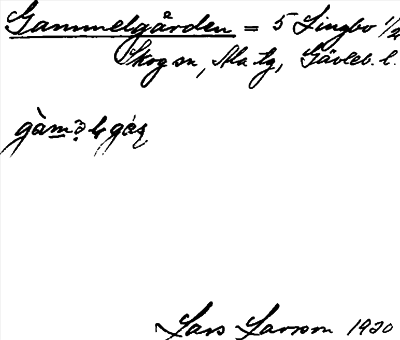 Gammelgården = 5 Lingbo 1/2
Skog sn, Ala tg, Gävleb. l.
Lars Larsson 1920